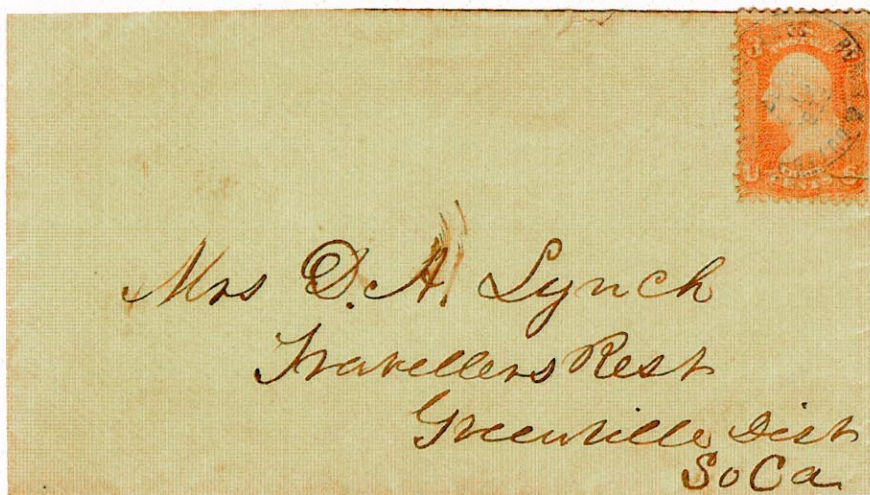 3 3
Mrs D. A. Lynch
Travellers Rest
Greenville Dist
So Ca